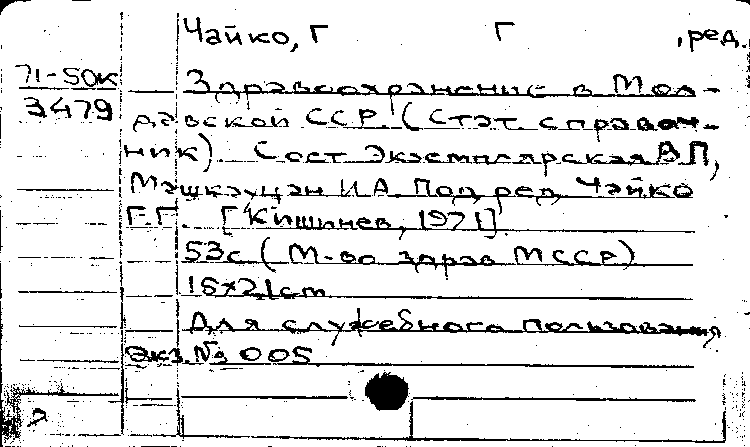 Чайко, Г Г , ред.
71-50к
3479
Здравоохранение в Мол-
давской ССР. (Стат. справоч-
ник). Сост Экземплярская В.П,
Машкауцан И.А. Под ред. Чайко
Г.Г. [Кишинев, 1971].
53с (М-во здрав МССР)
15×21cm
Для служебного пользования
экз. № 005